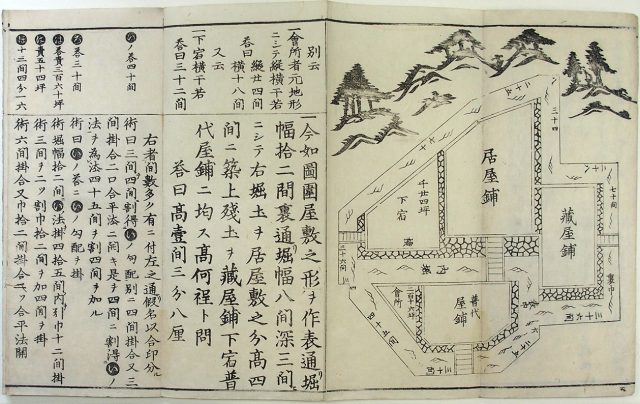 居屋鋪
藏屋鋪
千廿四坪
下宕
普代
屋鋪
二百十六坪
會所
三十四
七十間
裏巾
三十六間
別云
一會所者元地形
ニシテ縱横干若
答曰 縱廿四間
横十八間
又云
一下宕横干若
答曰三十二間
一今如圖圍屋敷之形ヲ作表通堀
幅拾二間裏通堀幅八間深三間
ニシテ右堀土ヲ居屋敷之分高四
間ニ築上殘土ヲ藏屋鋪下宕普
代屋鋪ニ均ス高何程ト問
答曰高壹間三分八厘
四十間
三十間
三百六十坪
五十四坪
十三間四分一六
右者間數多ク有ニ付左之通假名以合印分ル
術曰三間四間割得 勾配別ニ四間掛合又三
間掛合二口合平法ニ開キ是ヲ四間ニ割得 ノ
法ヲ為法四十五間ヲ割四間ヲ加ル
術曰 ノ ニ ノ勾配ヲ掛
術堀幅拾二間 法掛四拾五間内引巾十二間掛
術三間ヲ二ツ割巾拾二間ヲ加四間ヲ掛
術六間掛合又巾拾二間掛合二ツ合平法開